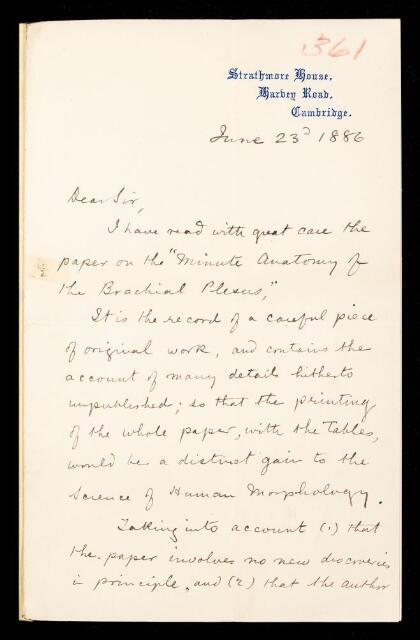 361
Strathmore House,
Harvey Road,
Cambridge.
June 23d 1886
Dear Sir,
I have read with great care the
paper on the "Minute Anatomy of
the Brachial Plexus,"
It is the record of a careful piece
of original work, and contains the
account of many details hitherto
unpublished; so that the printing
of the whole paper, with the Tables,
would be a distinct gain to the
Science of Human Morphology.
Taking into account (1) that
the paper involves no new discoveries
in principle, and (2) that the author